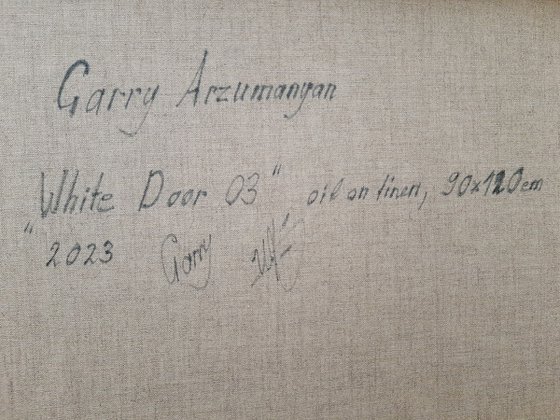 Garry Arzumanyan
"White Door 03" oil on linen, 90x120cm
2023 Garry